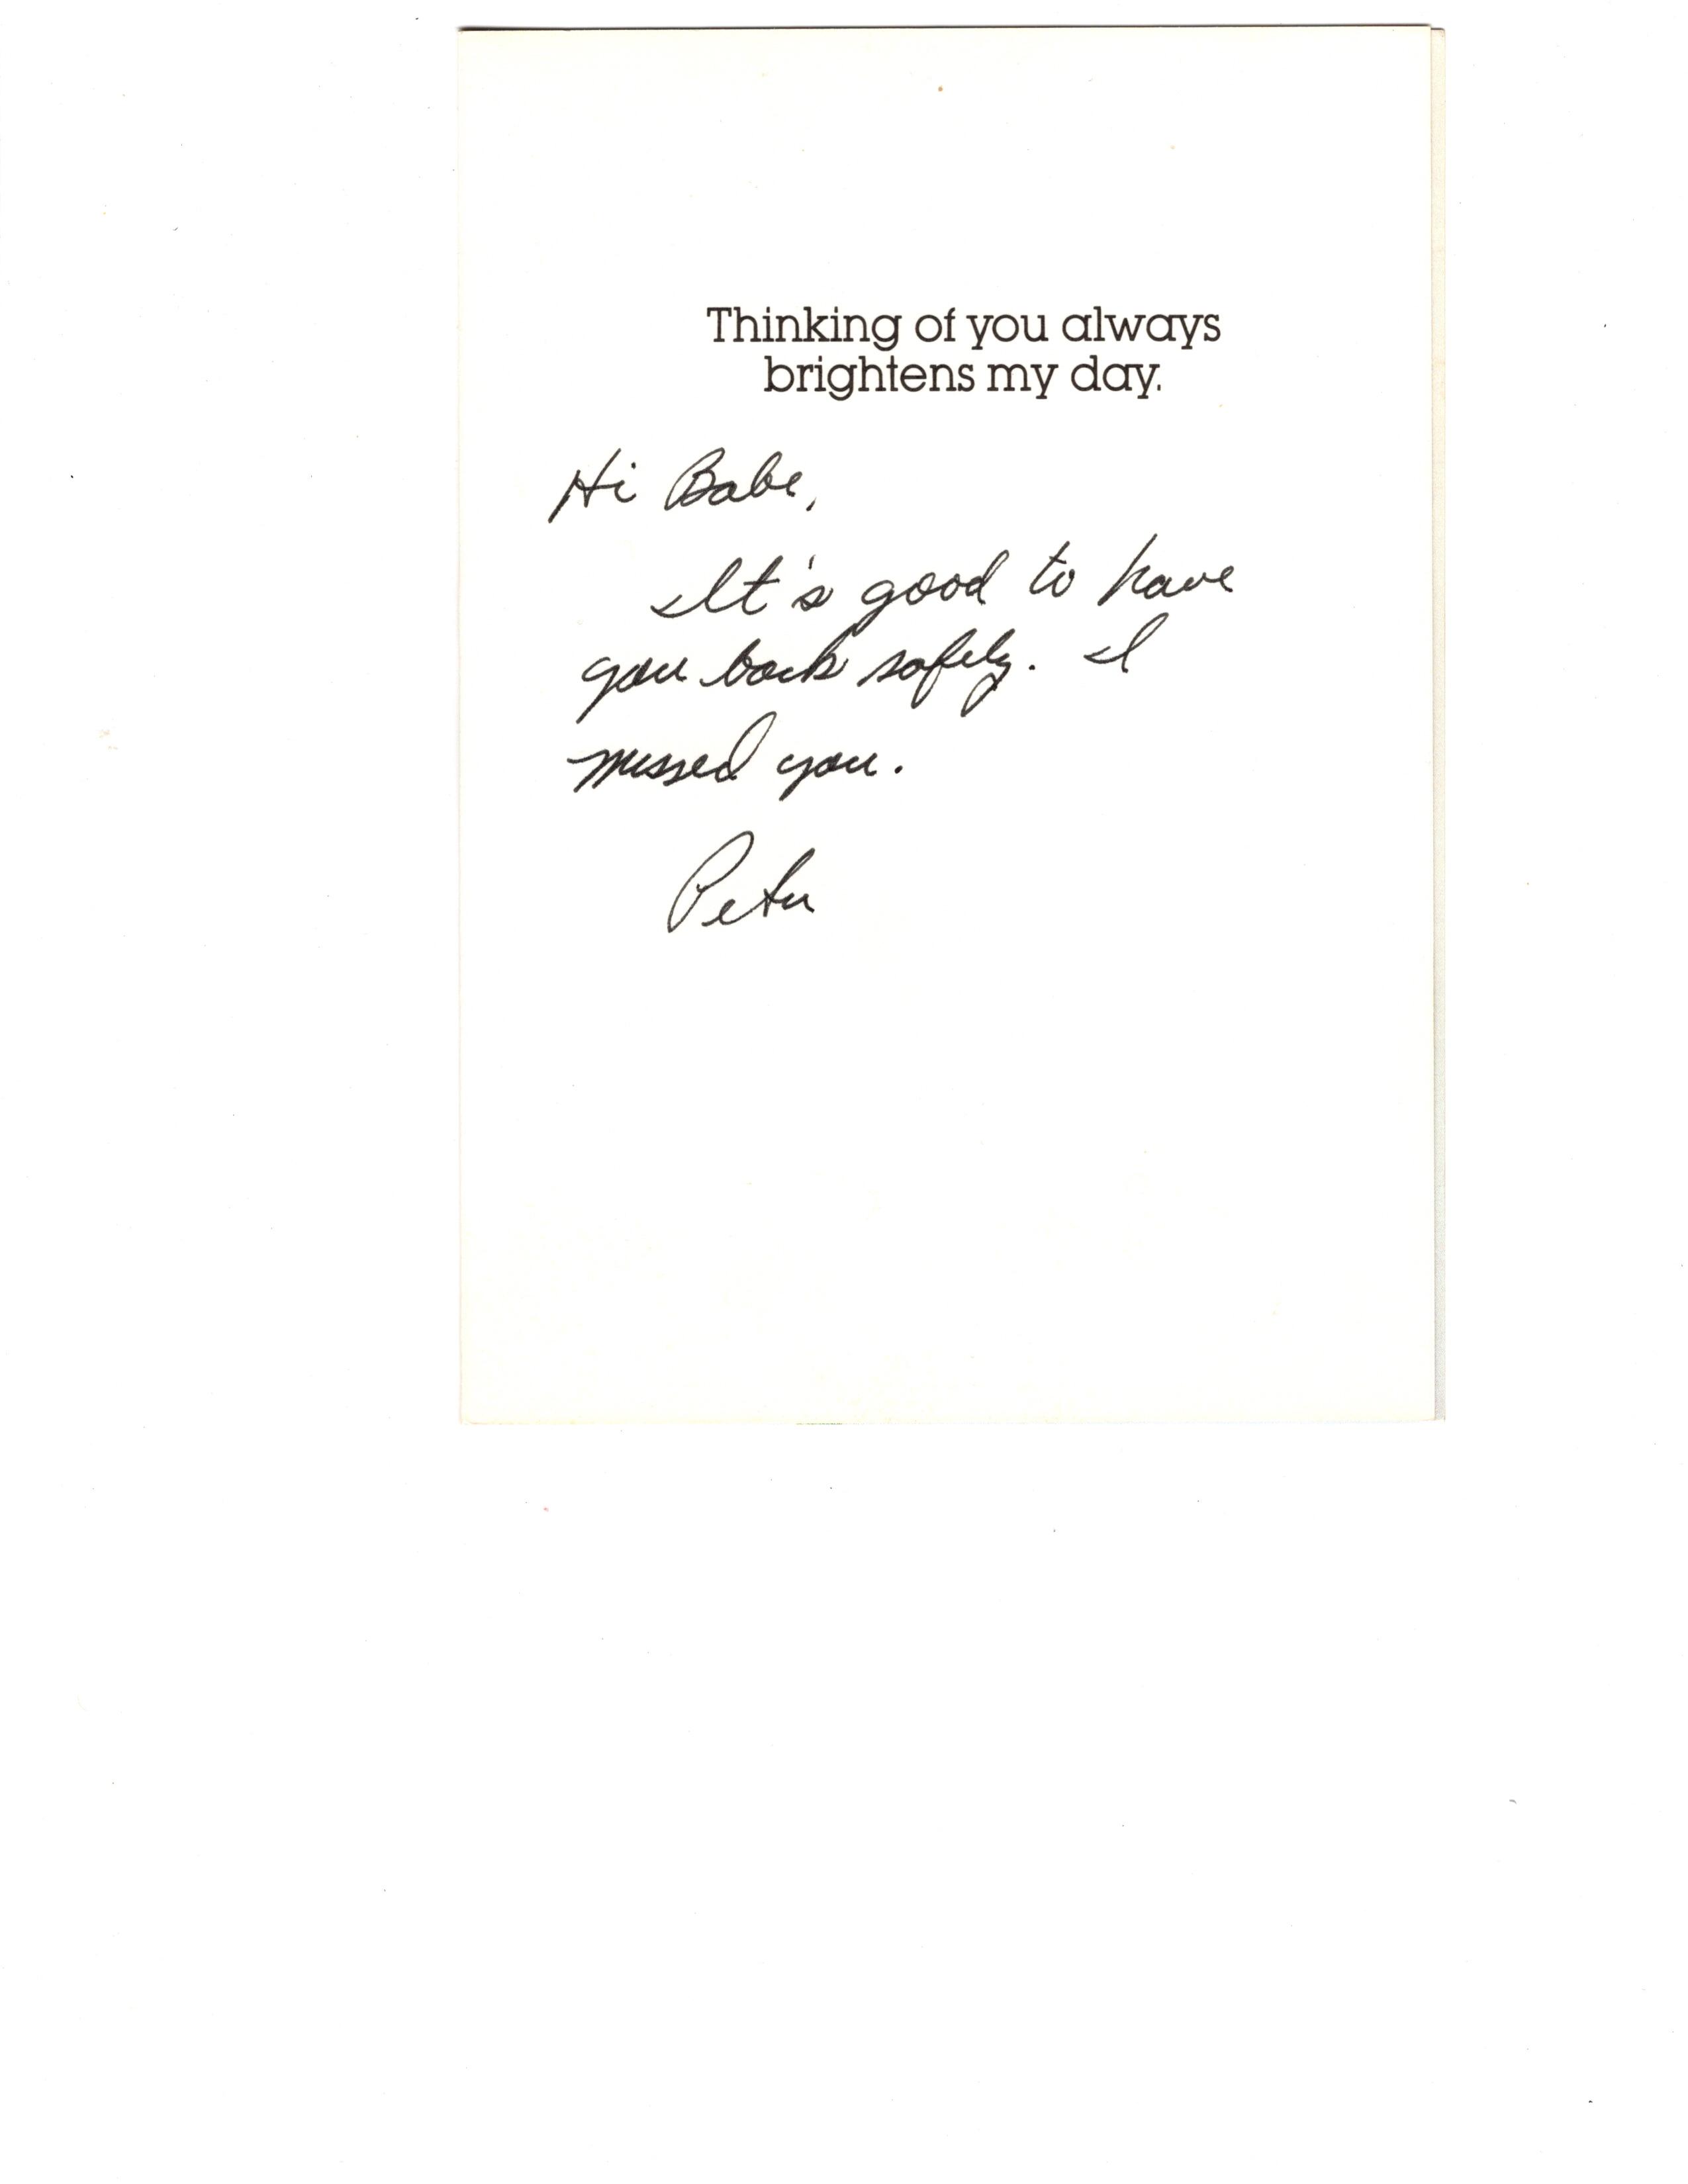 Thinking of you always
brightens my day.
Hi Babe,
It's good to have
you back safely. I
missed you.
Peter